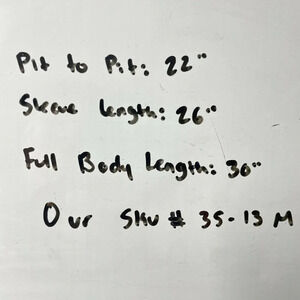 Pit to Pit: 22"
Sleeve Length: 26"
Full Body Length: 30"
Our SKU # 35-13 M